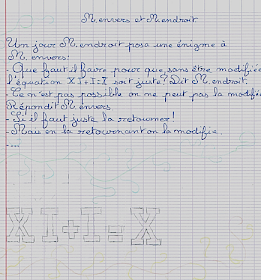 M. envers et M. endroit
Un jour M. endroit posa une énigme à
M. envers:
- Que faut il faire pour que sans être modifiée
l'équation XI+I=X soit juste? Dit M. endroit.
- Ce n'est pas possible on ne peut pas la modifier
Répondit M. envers
- Si il faut juste la retourner!
- Mais en la retournant on la modifie.
- ....
XI+I=X